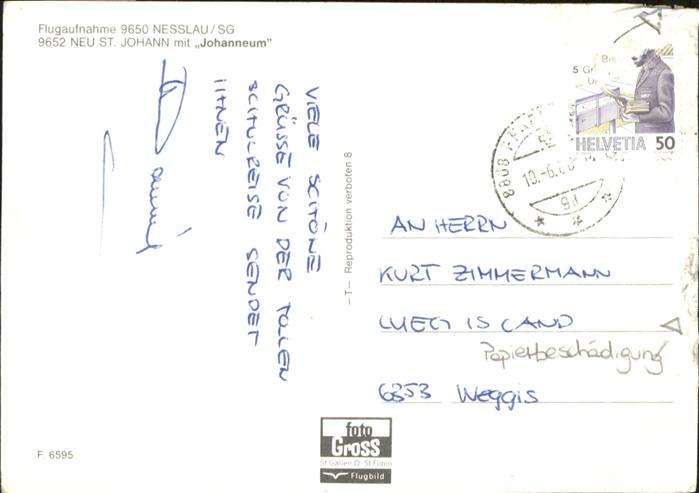 Flugaufnahme 9650 NESSLAU/SG
9652 NEU ST. JOHANN mit „Johanneum"
VIELE SCHÖNE
GRÜSSE VON DER TOLLEN
SCHULREISE SENDET
IHNEN
–T– Reproduktion verboten 8
8808
10.-6.
HELVETIA 50
AN HERRN
KURT ZIMMERMANN
LUEG IS LAND
Papierbeschädigung
6353 Weggis
foto
Gross
St Gallen
Flugbild
F 6595